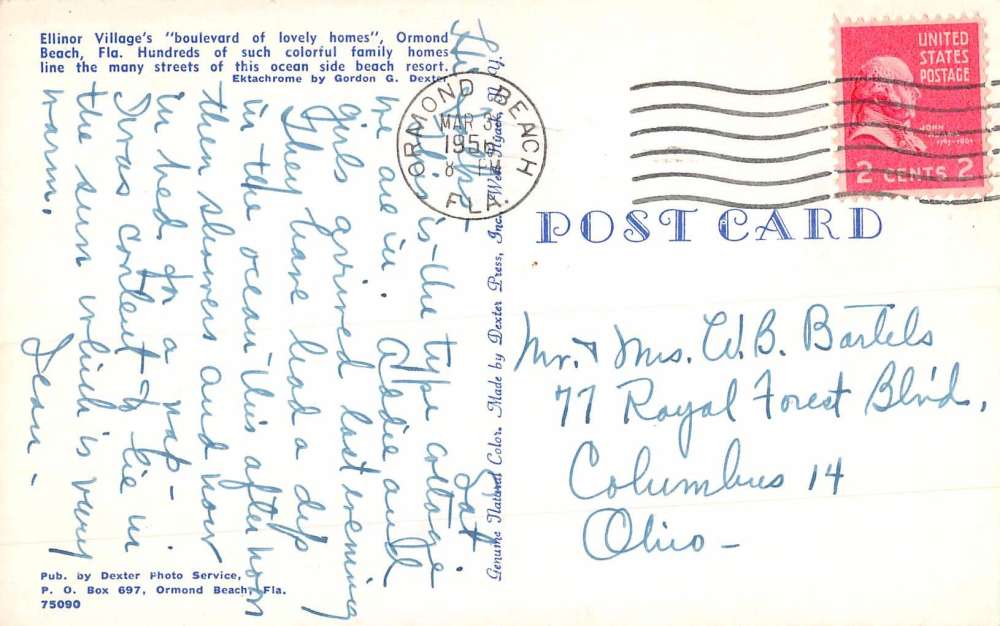 Ellinor Village's "boulevard of lovely homes", Ormond
Beach, Fla. Hundreds of such colorful family homes
line the many streets of this ocean side beach resort.
Ektachrome by Gordon G. Dexter
Sat
This is the type cottage
we are in. Addie and
girls arrived last evening
They have had a dip
in the ocean this afternoon
then showers and now
in bed for a nap -
I was content to lie in
the sun which is very
warm.
Jean -
Pub. by Dexter Photo Service,
P. O. Box 697, Ormond Beach, Fla.
75090
Genuine Natural Color. Made by Dexter Press, Inc., West Nyack, N. Y.
ORMOND BEACH
MAR 3
1956
8 PM
FLA.
UNITED
STATES
POSTAGE
JOHN
2 CENTS 2
POST CARD
Mr. & Mrs. W. B. Bartels
77 Royal Forest Blvd,
Columbus 14
Ohio -